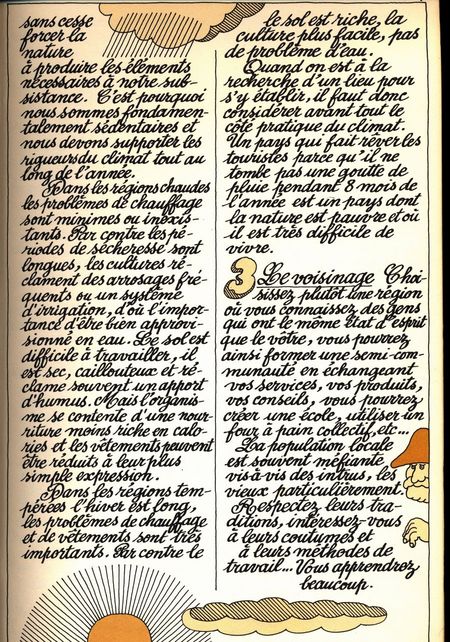 sans cesse
forcer la
nature
à produire les éléments
nécessaires à notre sub-
sistance. C'est pourquoi
nous sommes fondamen-
talement sédentaires et
nous devons supporter les
rigueurs du climat tout au
long de l'année.
Dans les régions chaudes
les problèmes de chauffage
sont minimes ou inexis-
tants. Par contre les pé-
riodes de sécheresse sont
longues, les cultures ré-
clament des arrosages fré-
quents ou un système
d'irrigation, d'où l'impor-
tance d'être bien approvi-
sionné en eau. Le sol est
difficile à travailler, il
est sec, caillouteux et ré-
clame souvent un apport
d'humus. Mais l'organis-
me se contente d'une nour-
riture moins riche en calo-
ries et les vêtements peuvent
être réduits à leur plus
simple expression.
Dans les régions tem-
pérées l'hiver est long,
les problèmes de chauffage
et de vêtements sont très
importants. Par contre le
le sol est riche, la
culture plus facile, pas
de problème d'eau.
Quand on est à la
recherche d'un lieu pour
s'y établir, il faut donc
considérer avant tout le
côté pratique du climat.
Un pays qui fait rêver les
touristes parce qu'il ne
tombe pas une goutte de
pluie pendant 8 mois de
l'année est un pays dont
la nature est pauvre et où
il est très difficile de
vivre.
3 Le voisinage Choi-
sissez plutôt une région
où vous connaissez des gens
qui ont le même état d'esprit
que le vôtre, vous pourrez
ainsi former une semi-com-
munauté en échangeant
vos services, vos produits,
vos conseils, vous pourrez
créer une école, utiliser un
four à pain collectif, etc...
La population locale
est souvent méfiante
vis à vis des intrus, les
vieux particulièrement.
Respectez leurs tra-
ditions, intéressez-vous
à leurs coutumes et
à leurs méthodes de
travail... Vous apprendrez
beaucoup.